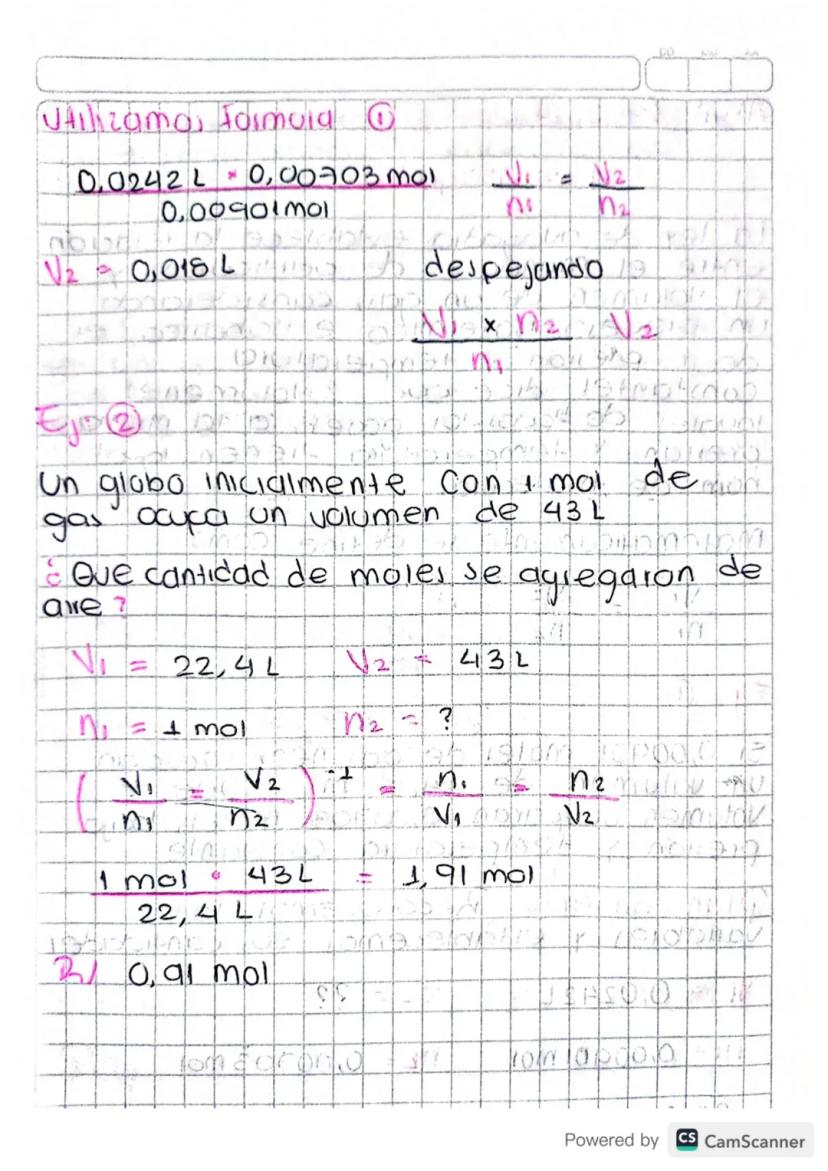 Utilizamos formula ①
0,0242 L * 0,00703 mol
0,00901 mol
V1 = V2
n1 n2
V2 = 0,018 L
despejando
V1 x n2 V2
n1
Ej: ②
Un globo inicialmente con 1 mol de
gas ocupa un volumen de 43 L
¿Que cantidad de moles se agregaron de
aire?
V1 = 22,4 L V2 = 43 L
n1 = 1 mol n2 = ?
( V1 = V2 )-1 = n1 = n2
n1 n2 V1 V2
1 mol • 43 L = 1,91 mol
22,4 L
R/ 0,91 mol
Powered by CS CamScanner